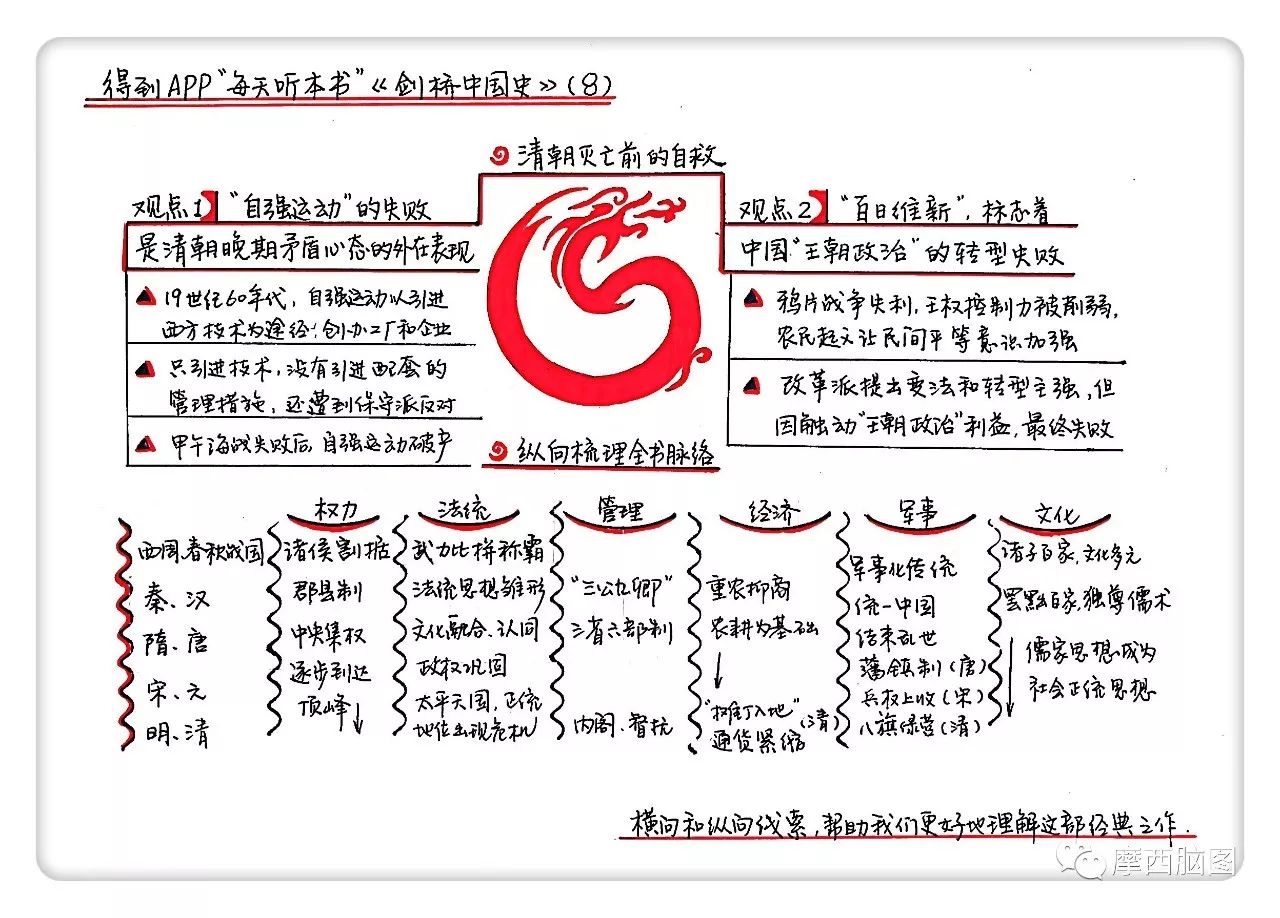 得到APP"每天听本书"《剑桥中国史》(8)
清朝灭亡前的自救
观点1 "自强运动"的失败
是清朝晚期矛盾心态的外在表现
19世纪60年代，自强运动以引进
西方技术为途经：创办工厂和企业
只引进技术，没有引进配套的
管理措施，还遭到保守派反对
甲午海战失败后，自强运动破产
观点2 "百日维新"，标志着
中国"王朝政治"的转型失败
鸦片战争失利，王权控制力被削弱，
农民起义让民间平等意识加强
改革派提出变法和转型主强，但
因触动"王朝政治"利益，最终失败
纵向梳理全书脉络
西周、春秋战国
秦、汉
隋、唐
宋、元
明、清
权力
诸侯割据
郡县制
中央集权
逐步到达
顶峰
法统
武力比拼称霸
法统思想雏形
文化融合、认同
政权巩固
太平天国，正统
地位出现危机
管理
"三公九卿"
三省六部制
内阁、督抚
经济
重农抑商
农耕为基础
"摊丁入地"
通货紧缩(清)
军事
军事化传统
统一中国
结束乱世
藩镇制(唐)
兵权上收(宋)
八旗绿营(清)
文化
诸子百家，文化多元
罢黜百家，独尊儒术
儒家思想成为
社会正统思想
横向和纵向线索，帮助我们更好地理解这部经典之作.
摩西脑图